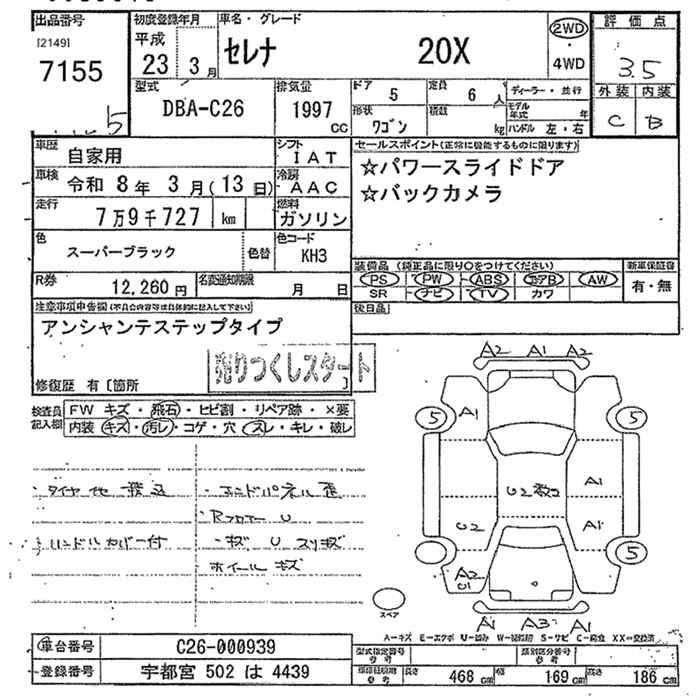 出品番号 初度登録年月 車名・グレード 評価点
[2149] 平成 セレナ 20X 2WD
7155 23 3月 4WD 3.5
型式 排気量 ドア 5 定員 6人 ディーラー・並行 外装 内装
DBA-C26 1997cc 形状 ワゴン 積載 kg モデル年式 年 C B
ハンドル 左・右
車歴 自家用 シフト IAT セールスポイント(正常に機能するものに限ります)
車検 令和 8年 3月(13日) 冷房 AAC ☆パワースライドドア
走行 7万9千727 km 燃料 ガソリン ☆バックカメラ
色 スーパーブラック 色替 色コード KH3
装備品(純正品に限り○をつけてください) 新車保証書
R券 12,260円 名変通知期限 月 日 PS PW ABS エアB AW 有・無
SR ナビ TV カワ
注意事項申告欄(不具合内容等は具体的に記入して下さい) 後日品
アンシャンテステップタイプ
売りつくしスタート
修復歴 有〔箇所 〕
検査員記入欄 FW キズ・飛石・ヒビ割・リペア跡・×要
内装 キズ・汚レ・コゲ・穴・スレ・キレ・破レ
A2 A1 A2
5 A1 5
U2 A1
U2 A1
5
A2
スペア
A1 A3 A1
・ハンドルカバー付
ホイールキズ
A-キズ E-エクボ U-凹み W-補修跡 S-サビ C-腐食 XX-交換済
車台番号 C26-000939 型式指定番号 参考 類別区分番号 参考
登録番号 宇都宮 502 は 4439 長さ 468cm 幅 169cm 高さ 186cm